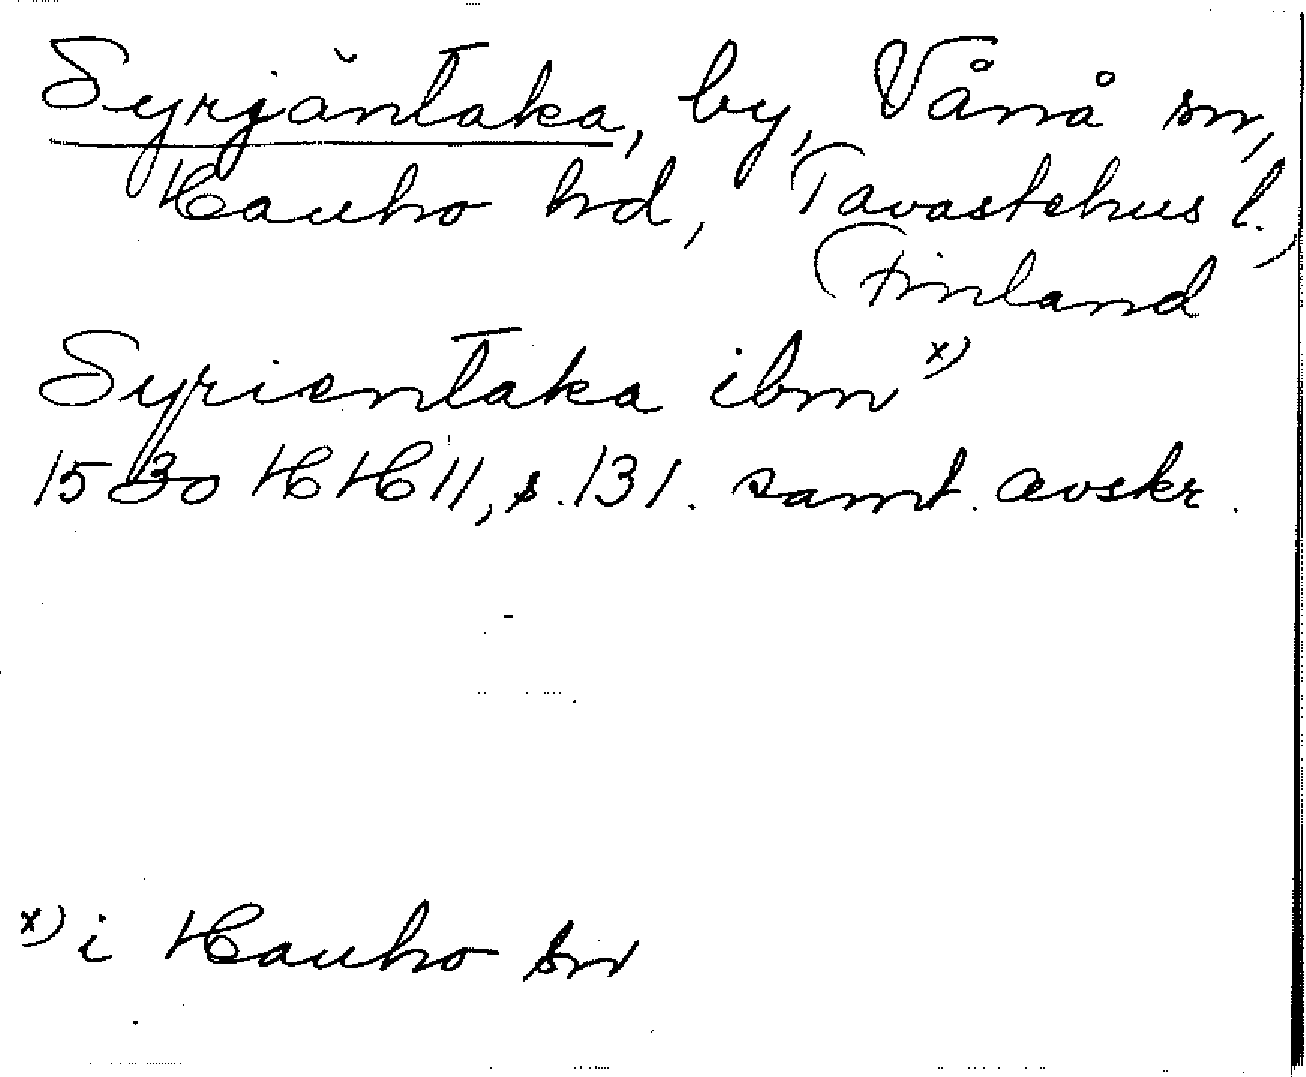 Syrjäntaka, by, Vånå sn,
Hauho hd, Tavastehus l.,
Finland
Syrientaka ibm x)
1530 HH 11, s. 131. samt. avskr.
x) i Hauho sn